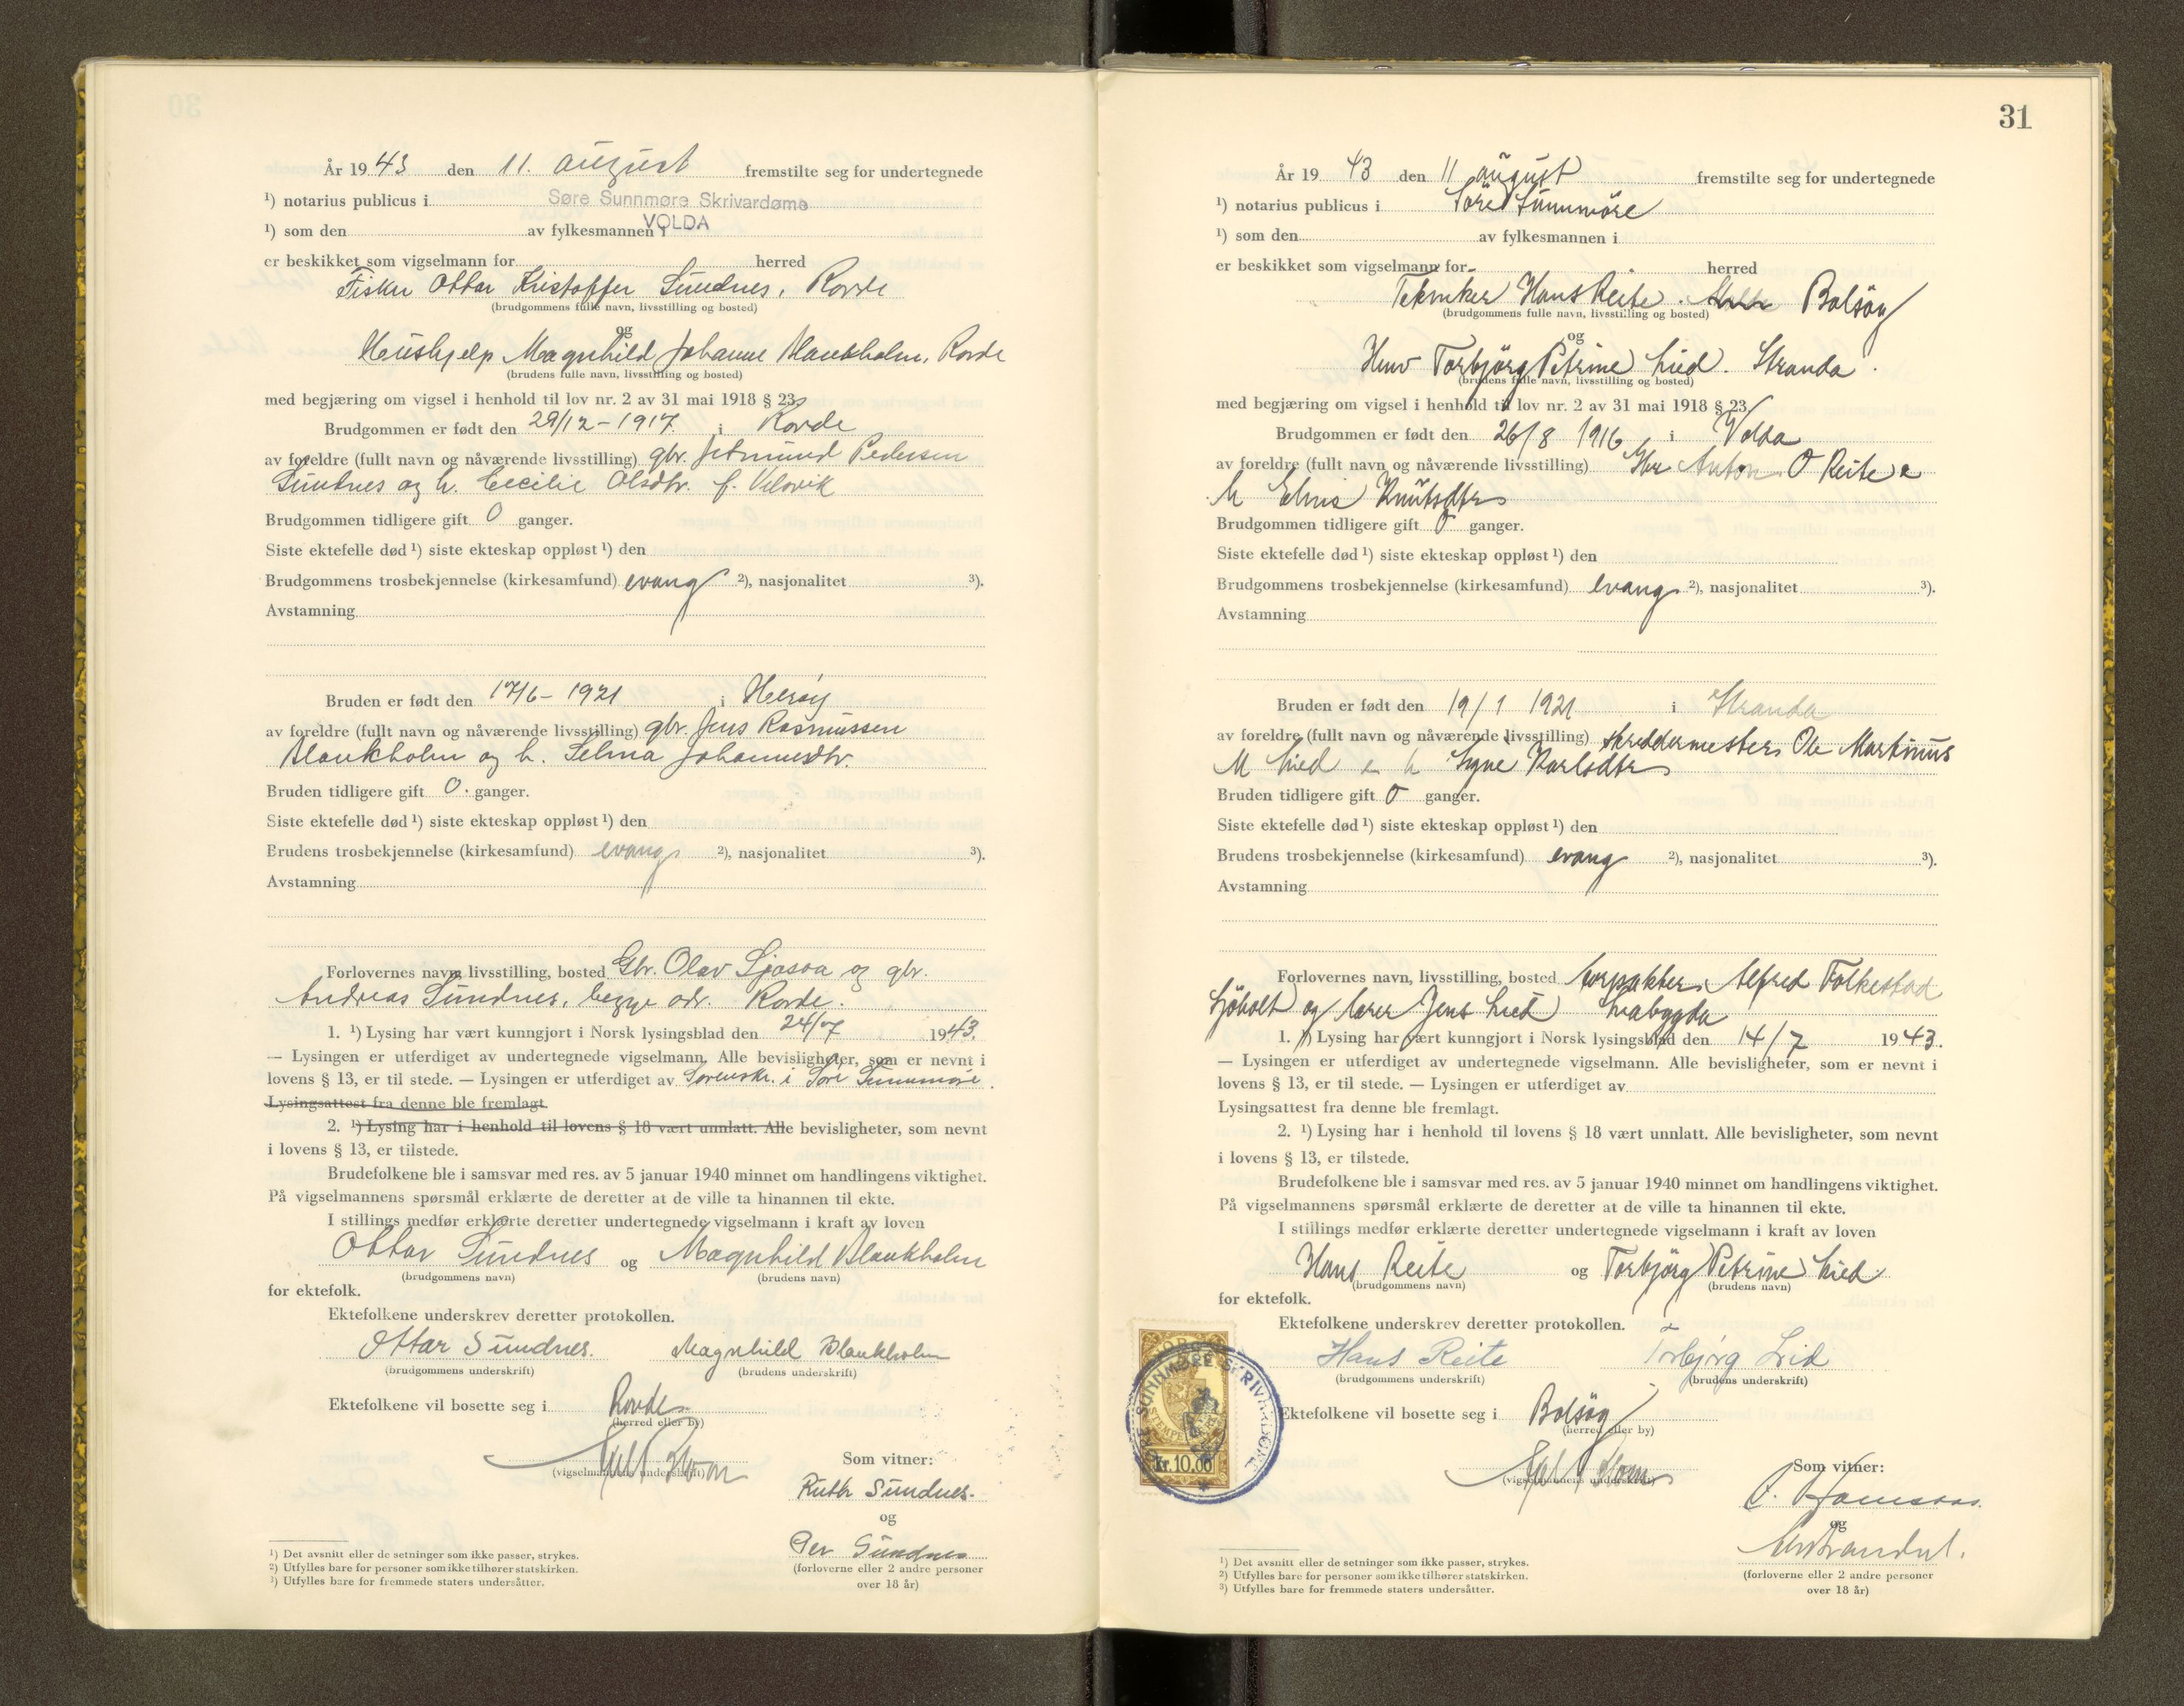 År 1943 den 11. august fremstilte seg for undertegnede
¹) notarius publicus i Søre Sunnmøre Skrivardøme
¹) som den av fylkesmannen i VOLDA
er beskikket som vigselmann for herred
Fisker Ottar Kristoffer Sundnes, Rovde
(brudgommens fulle navn, livsstilling og bosted)
og
Hushjelp Magnhild Johanne Blankholm, Rovde
(brudens fulle navn, livsstilling og bosted)
med begjæring om vigsel i henhold til lov nr. 2 av 31 mai 1918 § 23.
Brudgommen er født den 29/12 - 1917 i Rovde
av foreldre (fullt navn og nåværende livsstilling) gbr. Jetmund Pedersen
Sundnes og h. Cecilie Olsdtr. f.
Brudgommen tidligere gift 0 ganger.
Siste ektefelle død ¹) siste ekteskap oppløst ¹) den
Brudgommens trosbekjennelse (kirkesamfund) evang ²), nasjonalitet ³).
Avstamning
Bruden er født den 17/6 - 1921 i Herøy
av foreldre (fullt navn og nåværende livsstilling) gbr. Jens Rasmussen
Blankholm og h. Selma Johannesdtr.
Bruden tidligere gift 0. ganger.
Siste ektefelle død ¹) siste ekteskap oppløst ¹) den
Brudens trosbekjennelse (kirkesamfund) evang ²), nasjonalitet ³).
Avstamning
Forlovernes navn, livsstilling, bosted Gbr. Olav og gbr.
Andreas Sundnes, begge adr. Rovde.
1. ¹) Lysing har vært kunngjort i Norsk lysingsblad den 24/7 1943.
— Lysingen er utferdiget av undertegnede vigselmann. Alle bevisligheter, som er nevnt i
lovens § 13, er til stede. — Lysingen er utferdiget av Sorenskr. i Søre Sunnmøre.
Lysingsattest fra denne ble fremlagt
2. ¹) Lysing har i henhold til lovens § 18 vært unnlatt. Alle bevisligheter, som nevnt
i lovens § 13, er tilstede.
Brudefolkene ble i samsvar med res. av 5 januar 1940 minnet om handlingens viktighet.
På vigselmannens spørsmål erklærte de deretter at de ville ta hinannen til ekte.
I stillings medfør erklærte deretter undertegnede vigselmann i kraft av loven
Ottar Sundnes og Magnhild Blankholm
(brudgommens navn) (brudens navn)
for ektefolk.
Ektefolkene underskrev deretter protokollen.
Ottar Sundnes. Magnhild Blankholm
(brudgommens underskrift) (brudens underskrift)
Ektefolkene vil bosette seg i Rovde
(herred eller by)
(vigselmannens underskrift)
Som vitner:
Ruth Sundnes.
og
Per Sundnes
(forloverne eller 2 andre personer
over 18 år)
¹) Det avsnitt eller de setninger som ikke passer, strykes.
²) Utfylles bare for personer som ikke tilhører statskirken.
³) Utfylles bare for fremmede staters undersåtter.
31
År 1943 den 11 august fremstilte seg for undertegnede
¹) notarius publicus i Søre Sunnmøre
¹) som den av fylkesmannen i
er beskikket som vigselmann for herred
Tekniker Hans Reite. Bolsøy
(brudgommens fulle navn, livsstilling og bosted)
og
Torbjørg Petrine Lied. Stranda.
(brudens fulle navn, livsstilling og bosted)
med begjæring om vigsel i henhold til lov nr. 2 av 31 mai 1918 § 23.
Brudgommen er født den 26/8 1916 i Volda
av foreldre (fullt navn og nåværende livsstilling) Gbr Anton O Reite
h Knutsdtr
Brudgommen tidligere gift 0 ganger.
Siste ektefelle død ¹) siste ekteskap oppløst ¹) den
Brudgommens trosbekjennelse (kirkesamfund) evang ²), nasjonalitet ³).
Avstamning
Bruden er født den 19/1 1921 i Stranda
av foreldre (fullt navn og nåværende livsstilling) skreddermester Ole Martinus
M Lied h Signe Karlsdtr
Bruden tidligere gift 0 ganger.
Siste ektefelle død ¹) siste ekteskap oppløst ¹) den
Brudens trosbekjennelse (kirkesamfund) evang ²), nasjonalitet ³).
Avstamning
Forlovernes navn, livsstilling, bosted Alfred Folkestad
Sjøholt og lærer Jens Lied
1. ¹) Lysing har vært kunngjort i Norsk lysingsblad den 14/7 1943.
— Lysingen er utferdiget av undertegnede vigselmann. Alle bevisligheter, som er nevnt i
lovens § 13, er til stede. — Lysingen er utferdiget av
Lysingsattest fra denne ble fremlagt.
2. ¹) Lysing har i henhold til lovens § 18 vært unnlatt. Alle bevisligheter, som nevnt
i lovens § 13, er tilstede.
Brudefolkene ble i samsvar med res. av 5 januar 1940 minnet om handlingens viktighet.
På vigselmannens spørsmål erklærte de deretter at de ville ta hinannen til ekte.
I stillings medfør erklærte deretter undertegnede vigselmann i kraft av loven
Hans Reite og Torbjørg Petrine Lied
(brudgommens navn) (brudens navn)
for ektefolk.
Ektefolkene underskrev deretter protokollen.
Hans Reite Torbjørg Lied
(brudgommens underskrift) (brudens underskrift)
Ektefolkene vil bosette seg i Bolsøy
(herred eller by)
(vigselmannens underskrift)
kr. 10,00
Som vitner:
og
(forloverne eller 2 andre personer
over 18 år)
¹) Det avsnitt eller de setninger som ikke passer, strykes.
²) Utfylles bare for personer som ikke tilhører statskirken.
³) Utfylles bare for fremmede staters undersåtter.